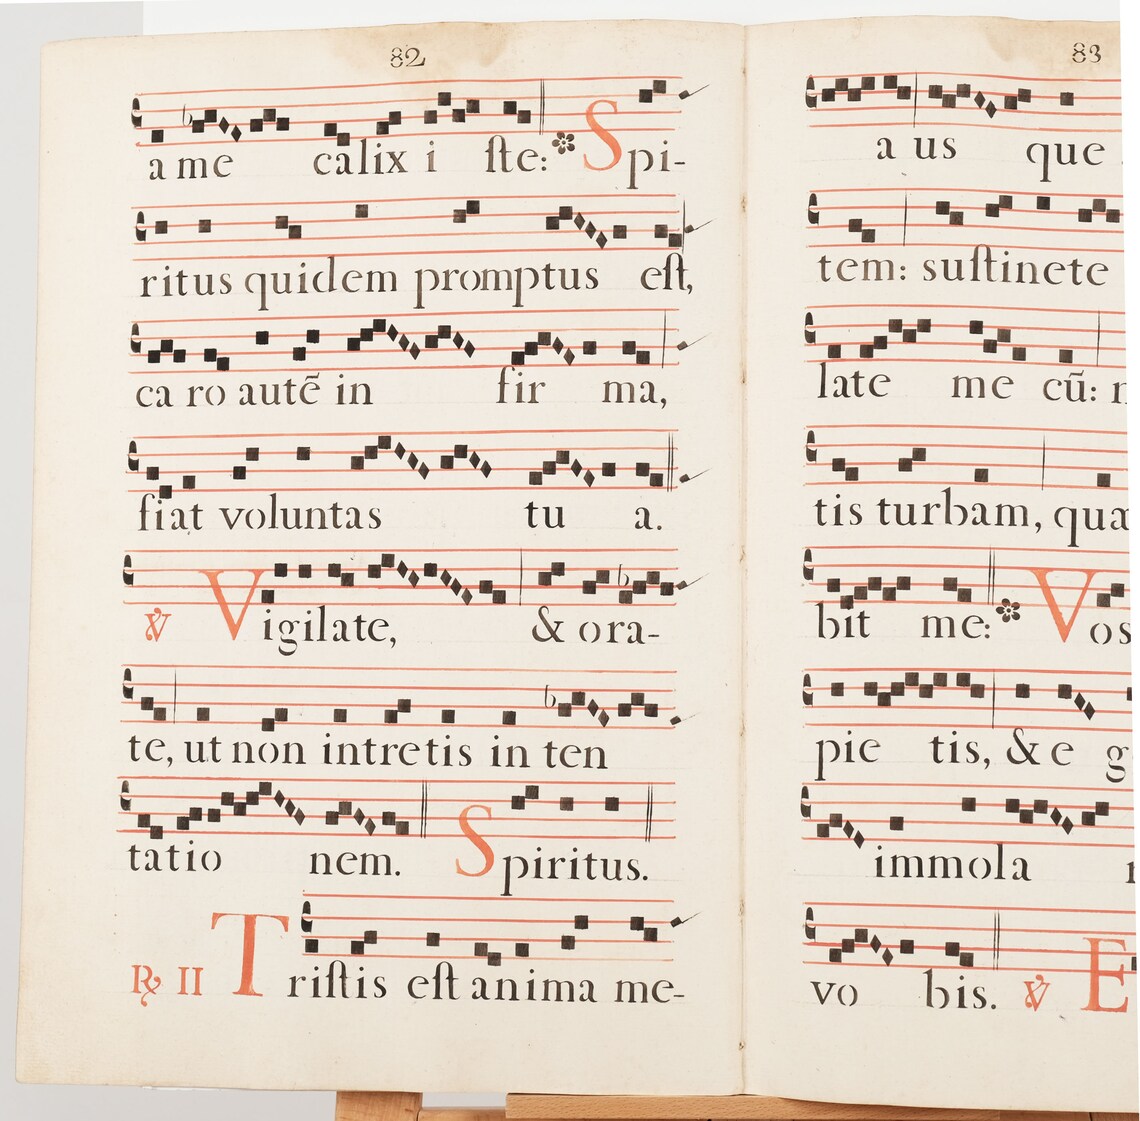 82
a me calix i ſte: Spi-
ritus quidem promptus eſt,
ca ro autẽ in fir ma,
fiat voluntas tu a.
℣ Vigilate, & ora-
te, ut non intretis in ten
tatio nem. Spiritus.
℟ II Triſtis eſt anima me-
83
a us que
tem: suſtinete
late me cũ:
tis turbam, qua
bit me: Vos
pie tis, & e g
immola
vo bis. ℣ E